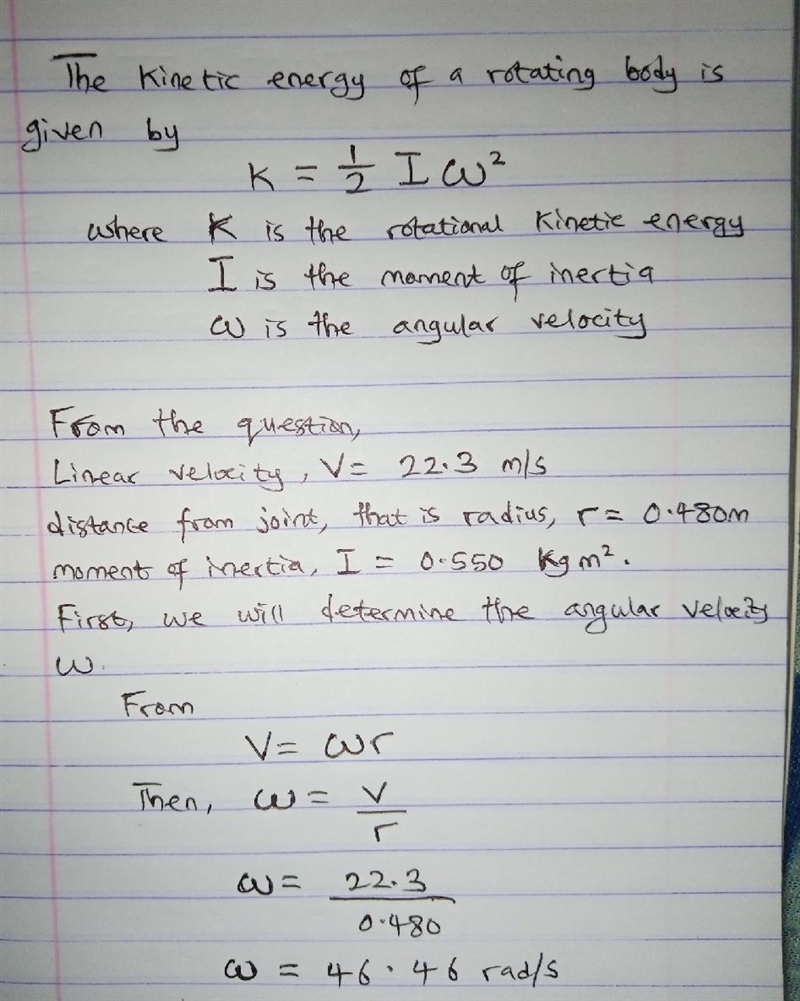 The Kinetic energy of a rotating body is
given by
K = 1/2 I ω²
where K is the rotational Kinetic energy
I is the moment of inertia
ω is the angular velocity
From the question,
Linear velocity, V = 22.3 m/s
distance from joint, that is radius, r = 0.480m
moment of inertia, I = 0.550 Kgm².
First, we will determine the angular velocity
ω.
From
V = ωr
Then, ω = V/r
ω = 22.3/0.480
ω = 46.46 rad/s